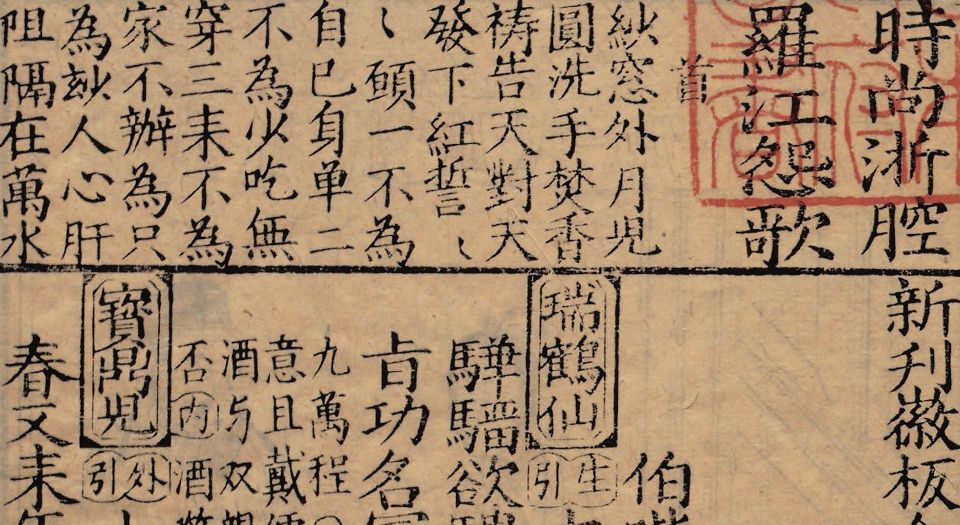 時尚浙腔
羅江怨歌
首
紗窓外月児
圓洗手焚香
祷告天對天
發下紅誓〻
〻頭一不為
自已身单二
不為少吃無
穿三耒不為
家不辦為只
為人心肝
阻隔在萬水
新刋徽板
伯
瑞鶴仙
生引
驊騮欲
旨功名
九萬程
意且戴
酒与双
否内酒
寳鼎児
外引
春又耒